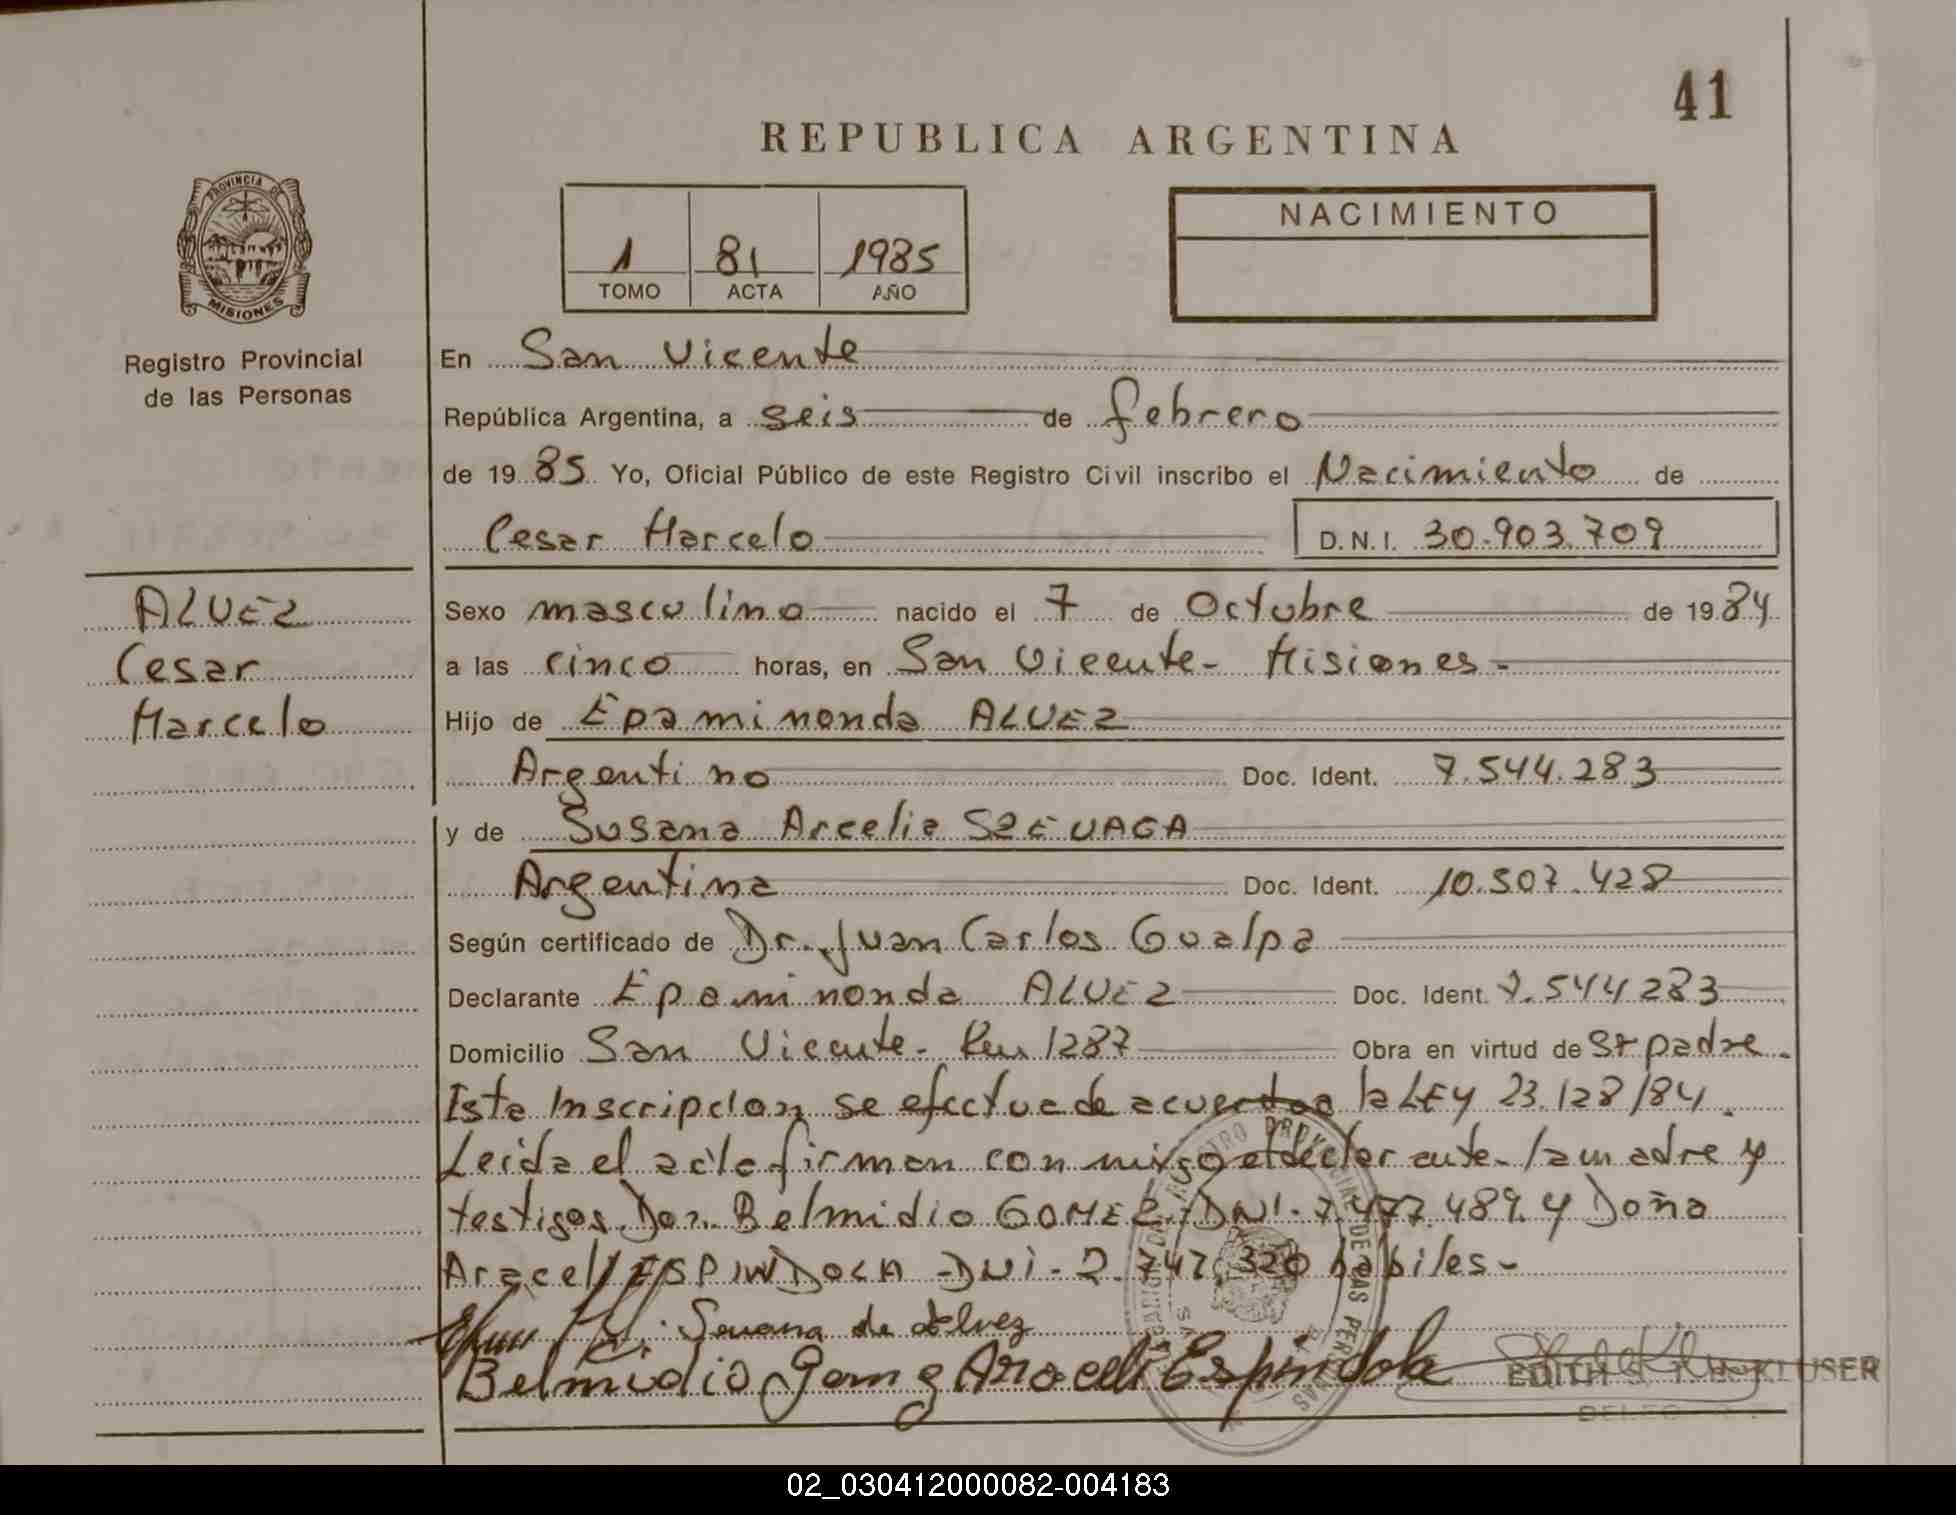 41
REPUBLICA ARGENTINA
PROVINCIA DE
MISIONES
Registro Provincial
de las Personas
1 81 1985
TOMO ACTA AÑO
NACIMIENTO
En San Vicente
República Argentina, a seis de febrero
de 1985 Yo, Oficial Público de este Registro Civil inscribo el Nacimiento de
Cesar Marcelo D.N.I. 30.903.709
ALVEZ
Cesar
Marcelo
Sexo masculino nacido el 7 de Octubre de 1984
a las cinco horas, en San Vicente - Misiones -
Hijo de Epaminonda ALVEZ
Argentino Doc. Ident. 7.544.283
y de Susana Arcelia SZEUAGA
Argentina Doc. Ident. 10.507.428
Según certificado de Dr. Juan Carlos Gualpa
Declarante Epaminonda ALVEZ Doc. Ident. 7.544283
Domicilio San Vicente - 1287 Obra en virtud de padre.
Ista Inscripcion se efectua de acuerdo a la LEY 23.128/84.
Leida el acto firman con migo el declarante - la madre y
testigos Don Belmidio GOMEZ, DNI - 7.477.489. y Doña
Araceli ESPINDOLA - DNI - 2.747.320 habiles -
Susana de Alvez
Belmidio Gomez Araceli Espindola
EDITH
02_030412000082-004183